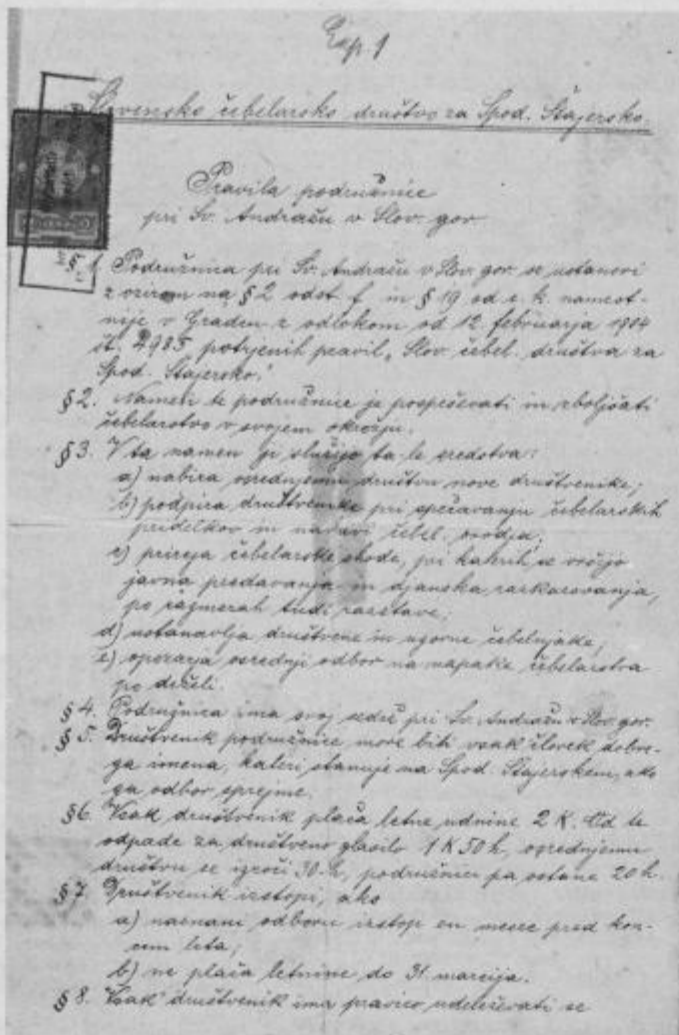 Slovensko čebelarsko društvo za Spod. Štajersko.
Pravila podružnice
pri Sv. Andražu v Slov. gor
§ 1. Podružnica pri Sv. Andražu v Slov. gor. se ustanovi
z ozirom na § 2 odst. f. in § 19 od c. k. namest-
nije v Gradcu z odlokom od 12. februarja 1904
št. 2985 potrjenih pravil „Slov. čebel. društva za
Spod. Štajersko."
§ 2. Namen te podružnice je pospeševati in zboljšati
čebelarstvo v svojem okrožju.
§ 3. V ta namen ji služijo ta-le sredstva:
a) nabira osrednjemu društvu nove društvenike;
b) podpira društvenike pri spečavanju čebelarskih
pridelkov in nabavi čebel. orodja;
c) prireja čebelarske shode, pri katerih se vršijo
javna predavanja in djanska razkazovanja,
po razmerah tudi razstave;
d) ustanavlja društvene in vzorne čebelnjake;
e) opozarja osrednji odbor na napake čebelarstva
po deželi.
§ 4. Podružnica ima svoj sedež pri Sv. Andražu v Slov. gor.
§ 5. Društvenik podružnice more biti vsak človek dobre-
ga imena, kateri stanuje na Spod. Štajerskem, ako
ga odbor sprejme.
§ 6. Vsak društvenik plača letne udnine 2 K. Od te
odpade za društveno glasilo 1 K 50 h, osrednjemu
društvu se izroči 30 h, podružnici pa ostane 20 h.
§ 7. Društvenik izstopi, ako
a) naznani odboru izstop en mesec pred kon-
cem leta;
b) ne plača letnine do 31. marcija.
§ 8. Vsak društvenik ima pravico udeleževati se